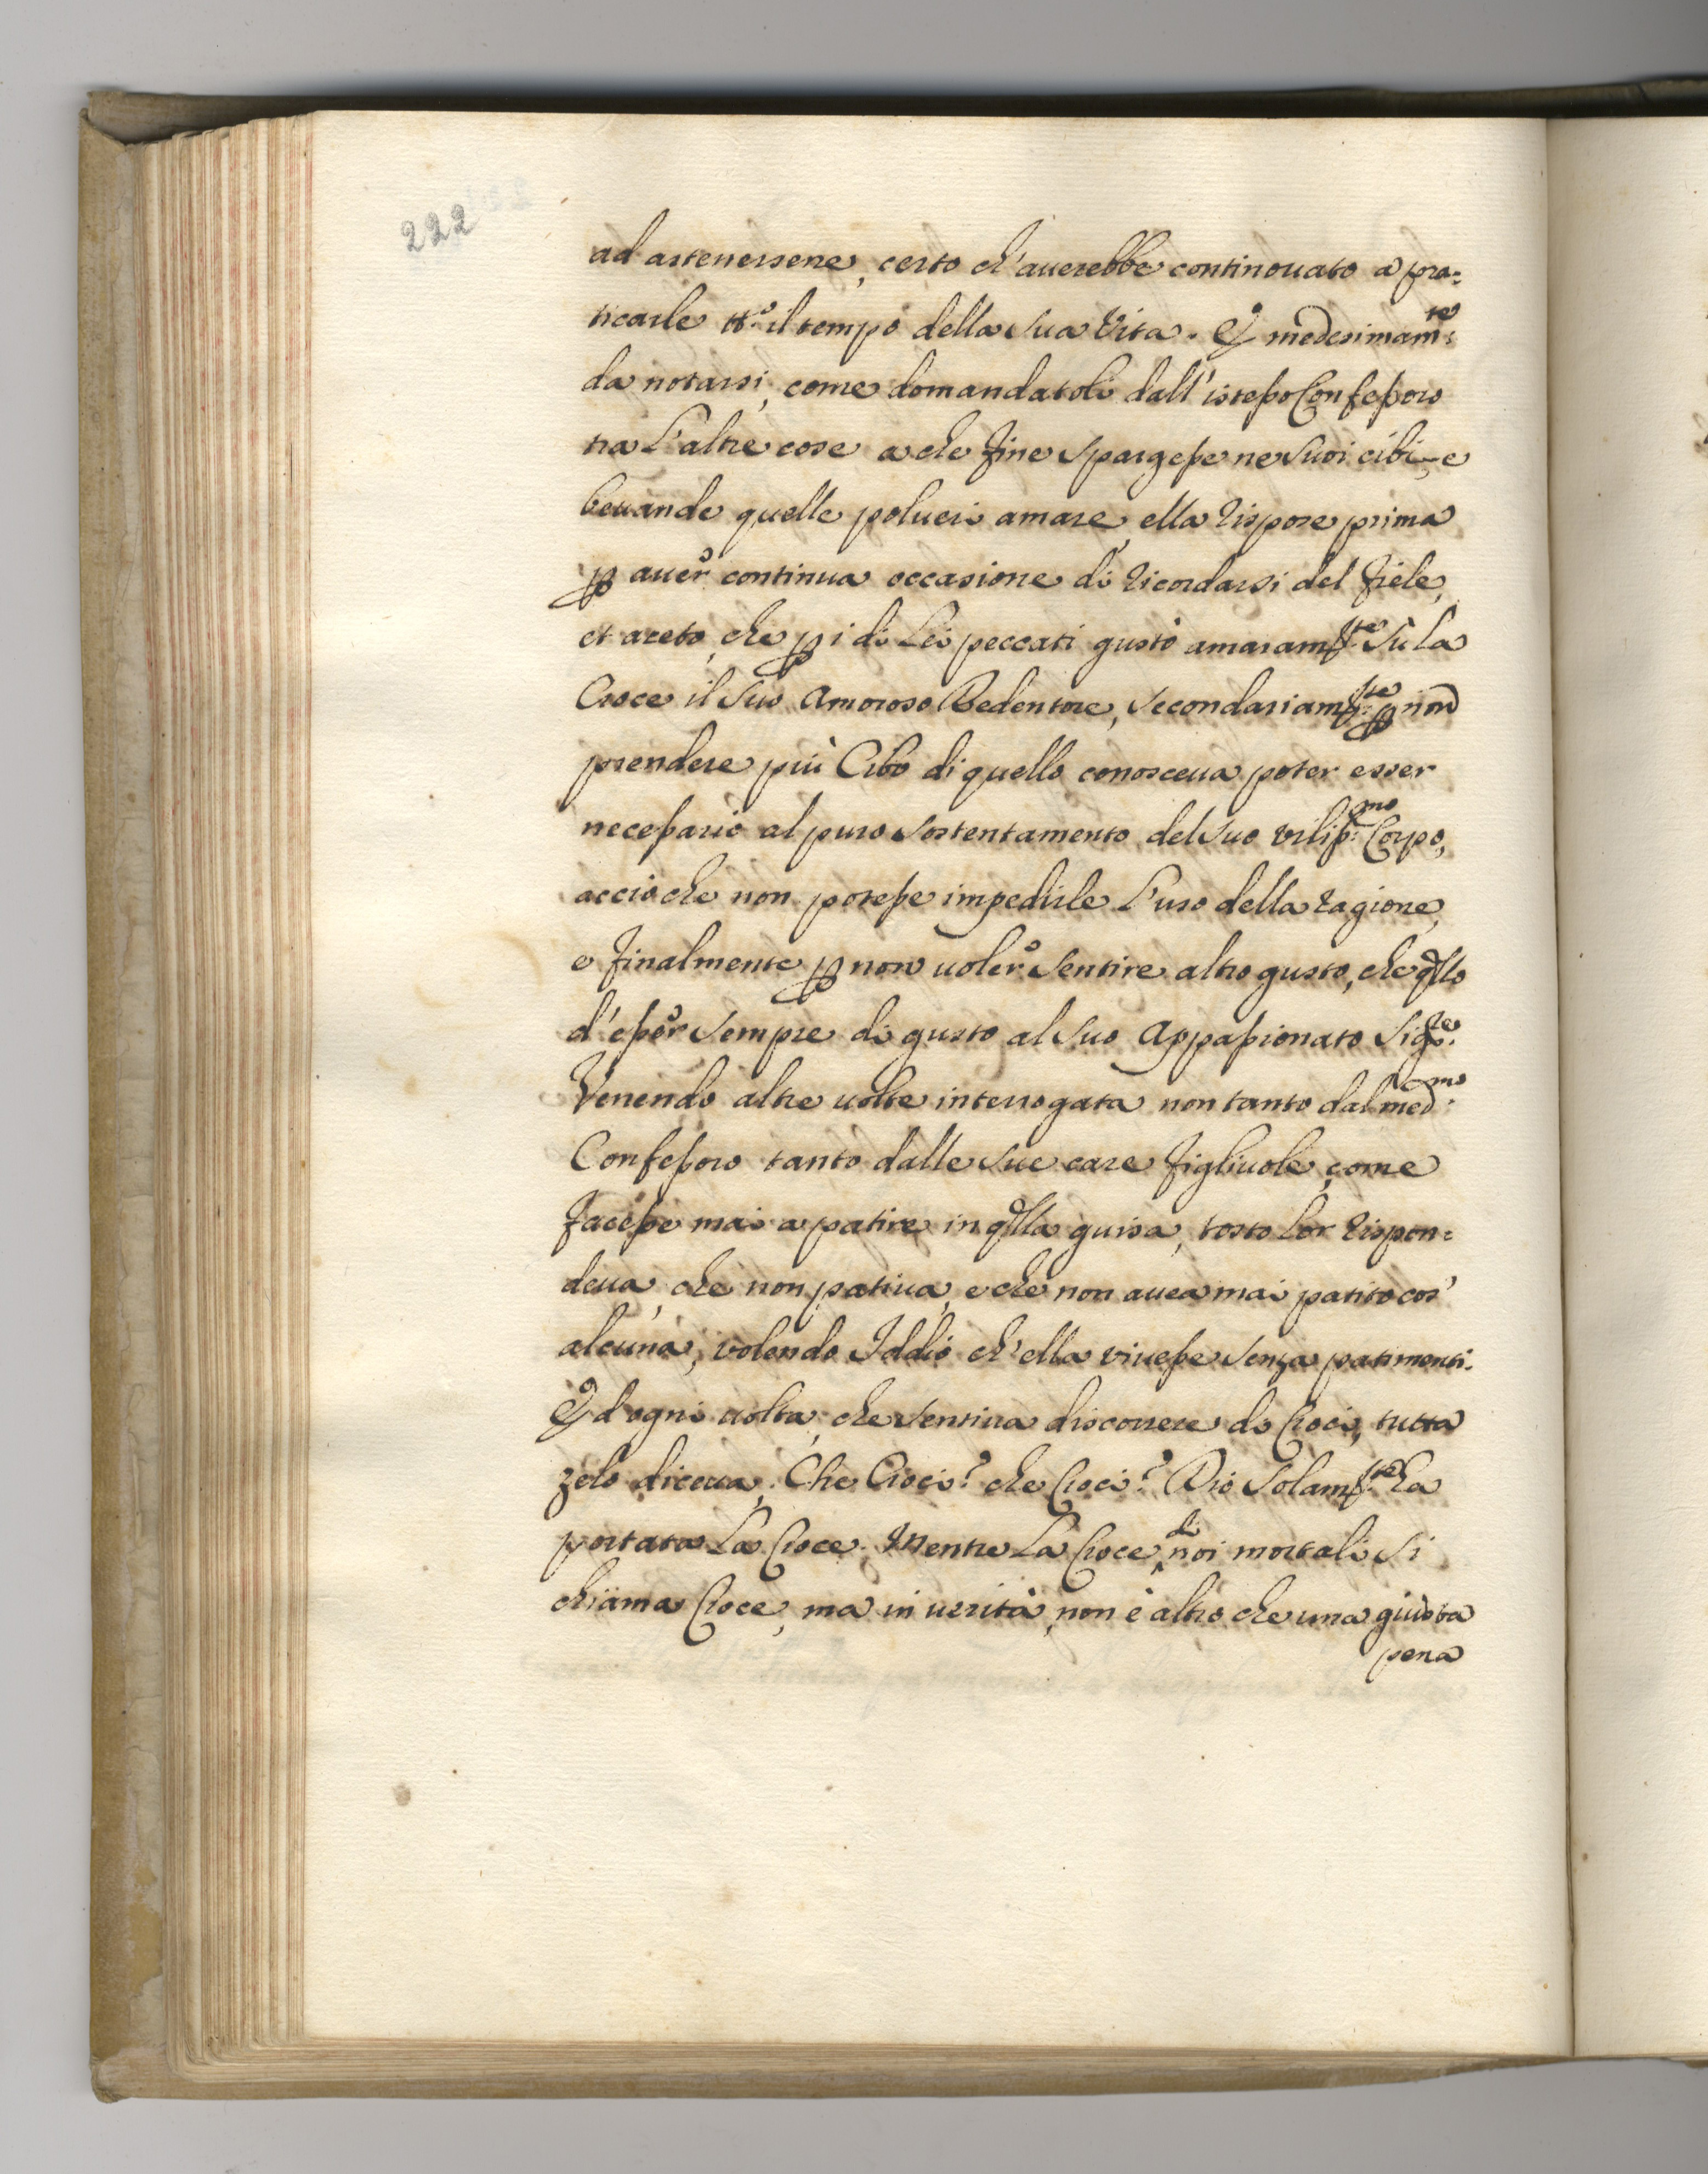 222
ad astenersene, certo ch'auerebbe continouato a pra=
ticarle tt.º il tempo della Sua Vita. È medesimam.te
da notarsi, come domandatoli dall'istesso Confessoro
tra L'altre cose a che fine Spargesse ne Suoi cibi, e
beuande quelle polueri amare, ella rispose prima
p auer continua occasione di ricordarsi del fiele,
et aceto, che p i di Lei peccati gustò amaram.te Sù La
Croce il Suo Amoroso Redentore, Secondariam.te p non
prendere più Cibo di quello conosceua poter esser
necessario al puro sostentamento del Suo viliss.mo Corpo,
acciò che non potesse impedirle L'uso della ragione,
e finalmente p non uoler Sentire altro gusto, che qllo
d'esser Sempre di gusto al Suo Appassionato Sig.re
Venendo altre uolte interrogata non tanto dal med.mo
Confessoro tanto dalle Sue care figliuole, come
facesse mai a patire in qlla guisa, tosto lor rispon=
deua, che non patiua, e che non auea mai patito cos'
alcuna, volendo Iddio ch'ella viuesse Senza patimenti.
Ed ogni uolta, che Sentiua discorrere di Croci, tutta
zelo diceua, Che Croci? che Croci? Dio Solam.te ha
portata La Croce. Mentre La Croce di noi mortali Si
chiama Croce, ma in uerità, non è altro che una giusta
pena